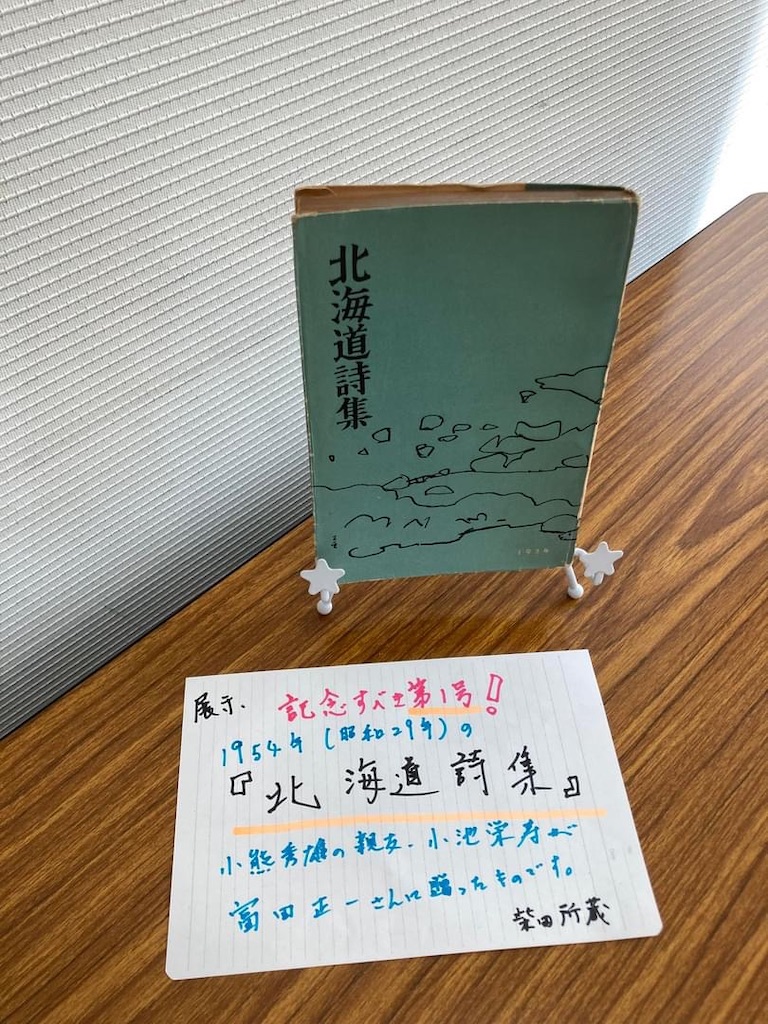 北海道詩集
1954
展示、 記念すべき第1号!
1954年(昭和29年)の
『北海道詩集』
小熊秀雄の親友・小池栄寿が
富田正一さんに贈ったものです。
柴田所蔵